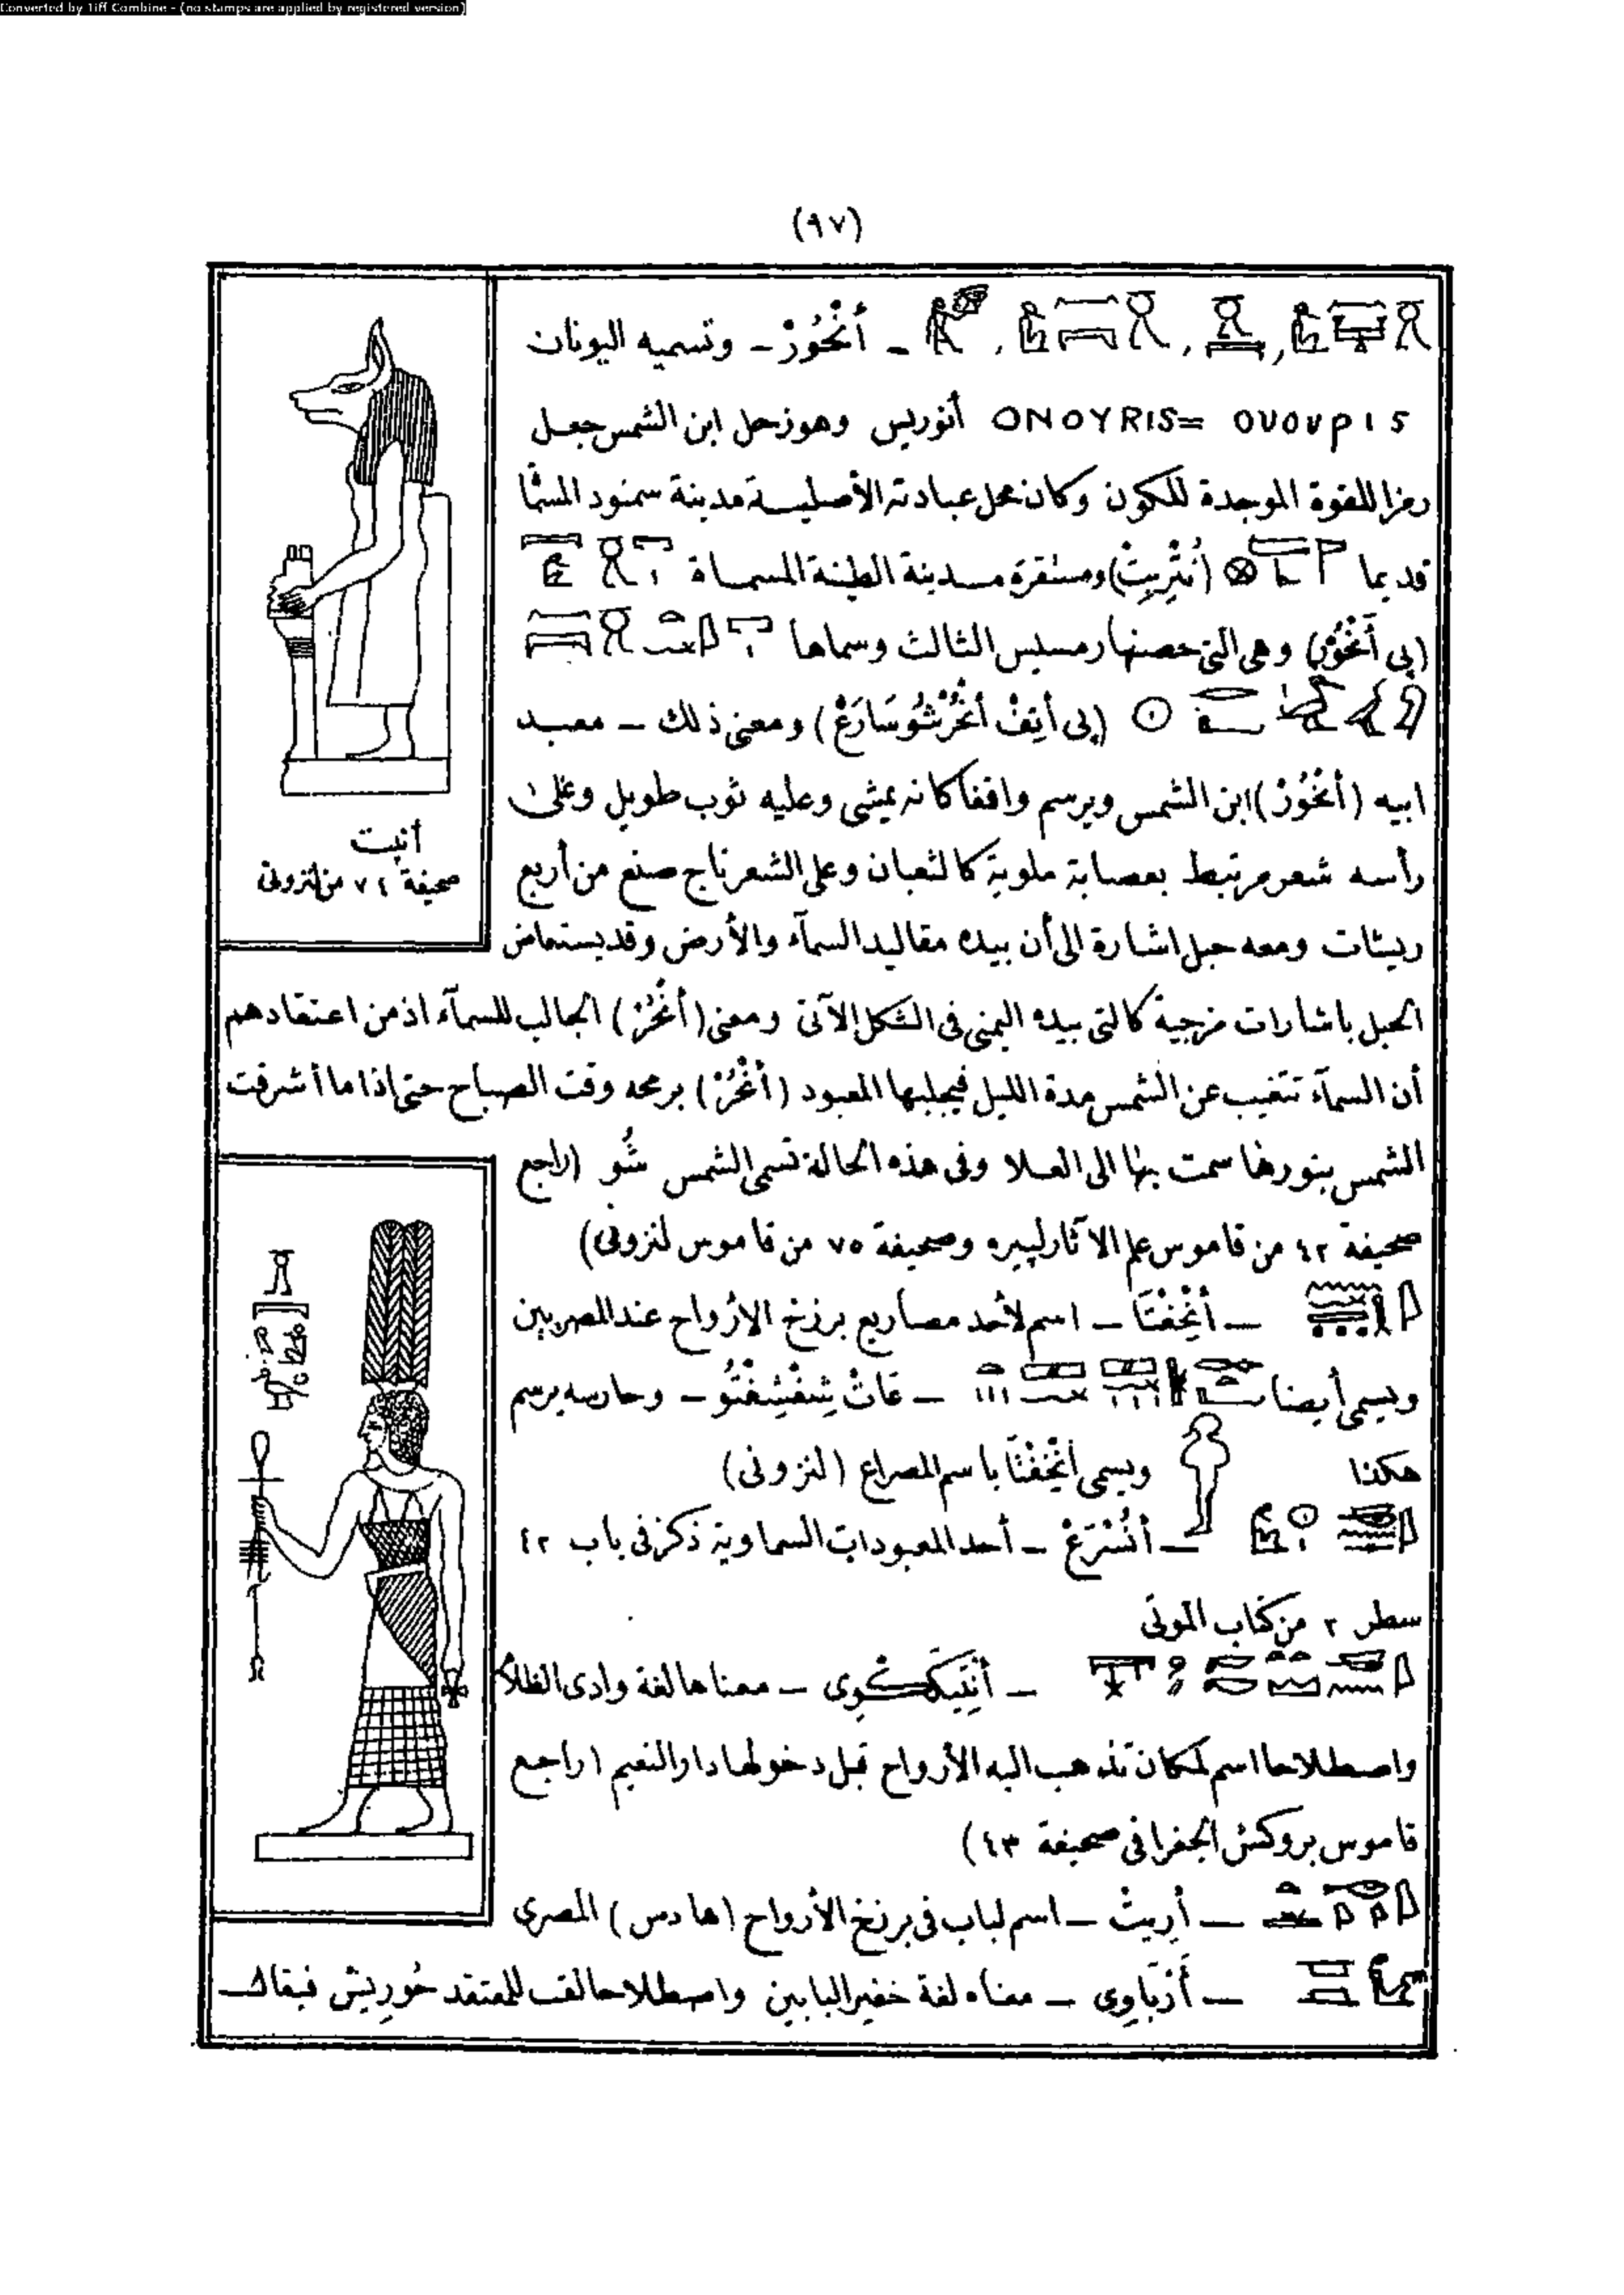 Converted by Tiff Combine - (no stamps are applied by registered version)
(٩٧)
ـ أَنْحُورْ ـ وتسميه اليونان
ONOYRIS= ονουρις أنوريس وهو زحل ابن الشمس جعل
رمزا للقوة الموجدة للكون وكان محل عبادته الأصلية مدينة سمنود المسماة
قديما (نُتْرِيتْ) ومستقره مدينة الطينة المسماة
(پى أَنْحُورْ) وهى التى حصنها رمسيس الثالث وسماها
(پى أتِفْ أنْحُرْشُوسَارَعْ) ومعنى ذلك ـ معبد
ابيه (أنْحُورْ) ابن الشمس ويرسم واقفا كانه يمشى وعليه ثوب طويل وعلى
رأسه شعر مرتبط بعصابة ملوية كالثعبان وعلى الشعر تاج صنع من أربع
ريشات ومعه حبل اشارة الى أن بيده مقاليد السمآء والأرض وقد يستعاض
الحبل باشارات مزجية كالتى بيده اليمنى فى الشكل الآتى ومعنى (أنْحُرْ) الجالب للسمآء اذ من اعتقادهم
أن السمآء تتغيب عن الشمس مدة الليل فيجلبها المعبود (أنْحُرْ) برمحه وقت الصباح حتى اذا ما أشرقت
الشمس بنورها سمت بها الى العلا وفى هذه الحالة تسمى الشمس شُو (راجع
صحيفة ٤٢ من قاموس علم الآثار لپيره وصحيفة ٧٥ من قاموس لنزونى)
ـ أَنْحِفْتَا ـ اسم لأحد مصاريع برزخ الأرواح عند المصريين
ويسمى أيضا ـ عَاتْ شِفْشِفْتُو ـ وحارسه يرسم
هكذا ويسمى أَنْحِفْتَا باسم المصراع (لنزونى)
ـ أَنُسْرَعْ ـ أحد المعبودات السماوية ذكر فى باب ٤٢
سطر ٢ من كتاب الموتى
ـ أَنْتِيكِكْوِى ـ معناها لغة وادى الظلام
واصطلاحا اسم لمكان تذهب اليه الأرواح قبل دخولها دار النعيم (راجع
قاموس بروكش الجغرافى صحيفة ٤٣)
ـ أرِيتْ ـ اسم لباب فى برزخ الأرواح (هادس) المصرى
ـ أَرْبَاوِى ـ معناه لغة خفير البابين واصطلاحا لقب للمعتقد حُورِيسْ فيقال
أنپت
صحيفة ٧٤ من لنزونى